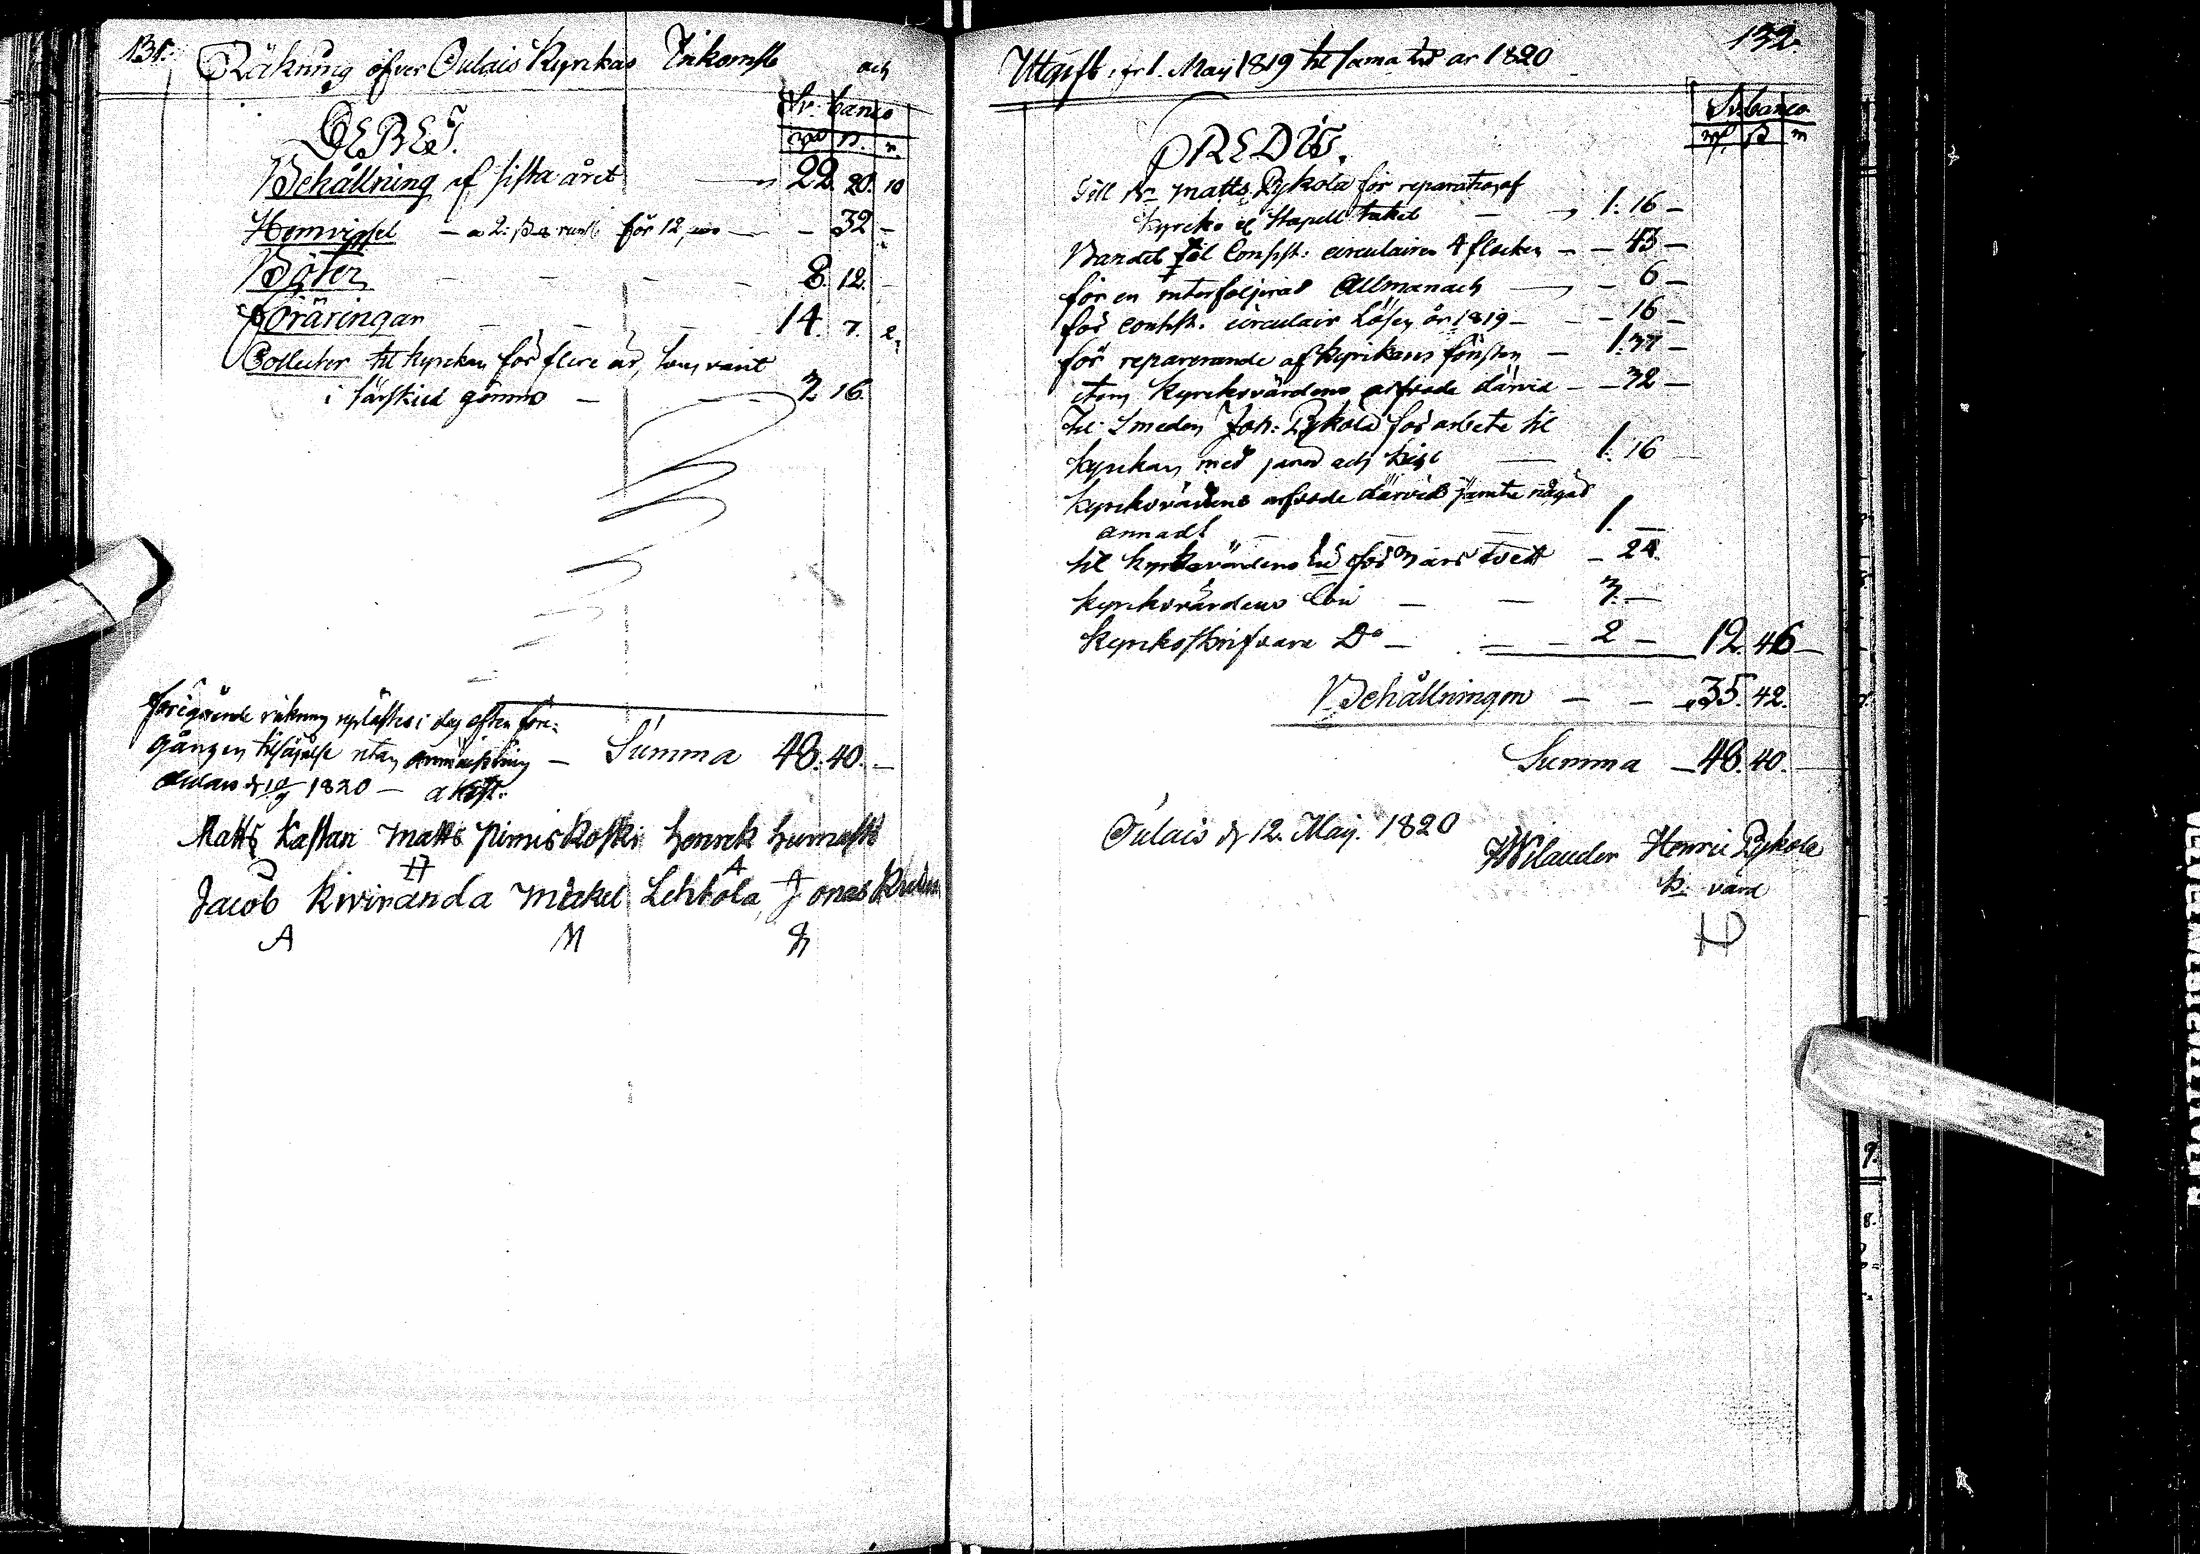 131.
Räkning öfver Oulais Kyrckas Inkomst och
DEBET.
Sv. banco
Behållning af sista året 22. 20. 10
Hemvissel a 2: för 12 — 32 —
Böter — — — — 8. 12. —
Föräringar — — — — 14. 7. 2.
Collecter til kyrckan för flere år, som varit
i särskild gömmo — — — 3 16.
Föregående räkning uplästes i dag efter före-
gången tilsäjelse utan anmärkning — Summa 48. 40. —
Oulais d. 1820 —
Matts Kastari Matts Pirneskoski Henrik
H A
Jacob Kiviranda Mickel Lehtola, Jonas
A M
132.
Utgift, fr 1. Maij 1819 til sama tid år 1820
CREDIT.
Sv. banco
Till Matts Pykola för reparation af
kyrcko och stapell taket — — 1. 16 —
Bandet til Consist: circulairen 4 flocken — — 43 —
för en interfoljerad Allmanach — — 6 —
för Consist. circulair Lösen år 1819 — — — 16 —
för reparerande af kyrckans fönster — 1. 37 —
item kyrckovärdens arfvode därvid — — 32 —
Til Smeden Joh: Pykola för arbete til
kyrckan med jarn och — 1. 16 —
kyrckovärdens arfvode därvid jämte något
annadt — — — 1. —
til kyrckovärdens för 3 års tvett — 24.
kyrckovärdens Lön — — 3. —
kyrckoskrifvare Do — — — 2 — 12. 46 —
Behållningen — — 35. 42.
Summa — 48. 40. —
Oulais d. 12. Maij. 1820
Wilander Henric Pykola
k. värd
H